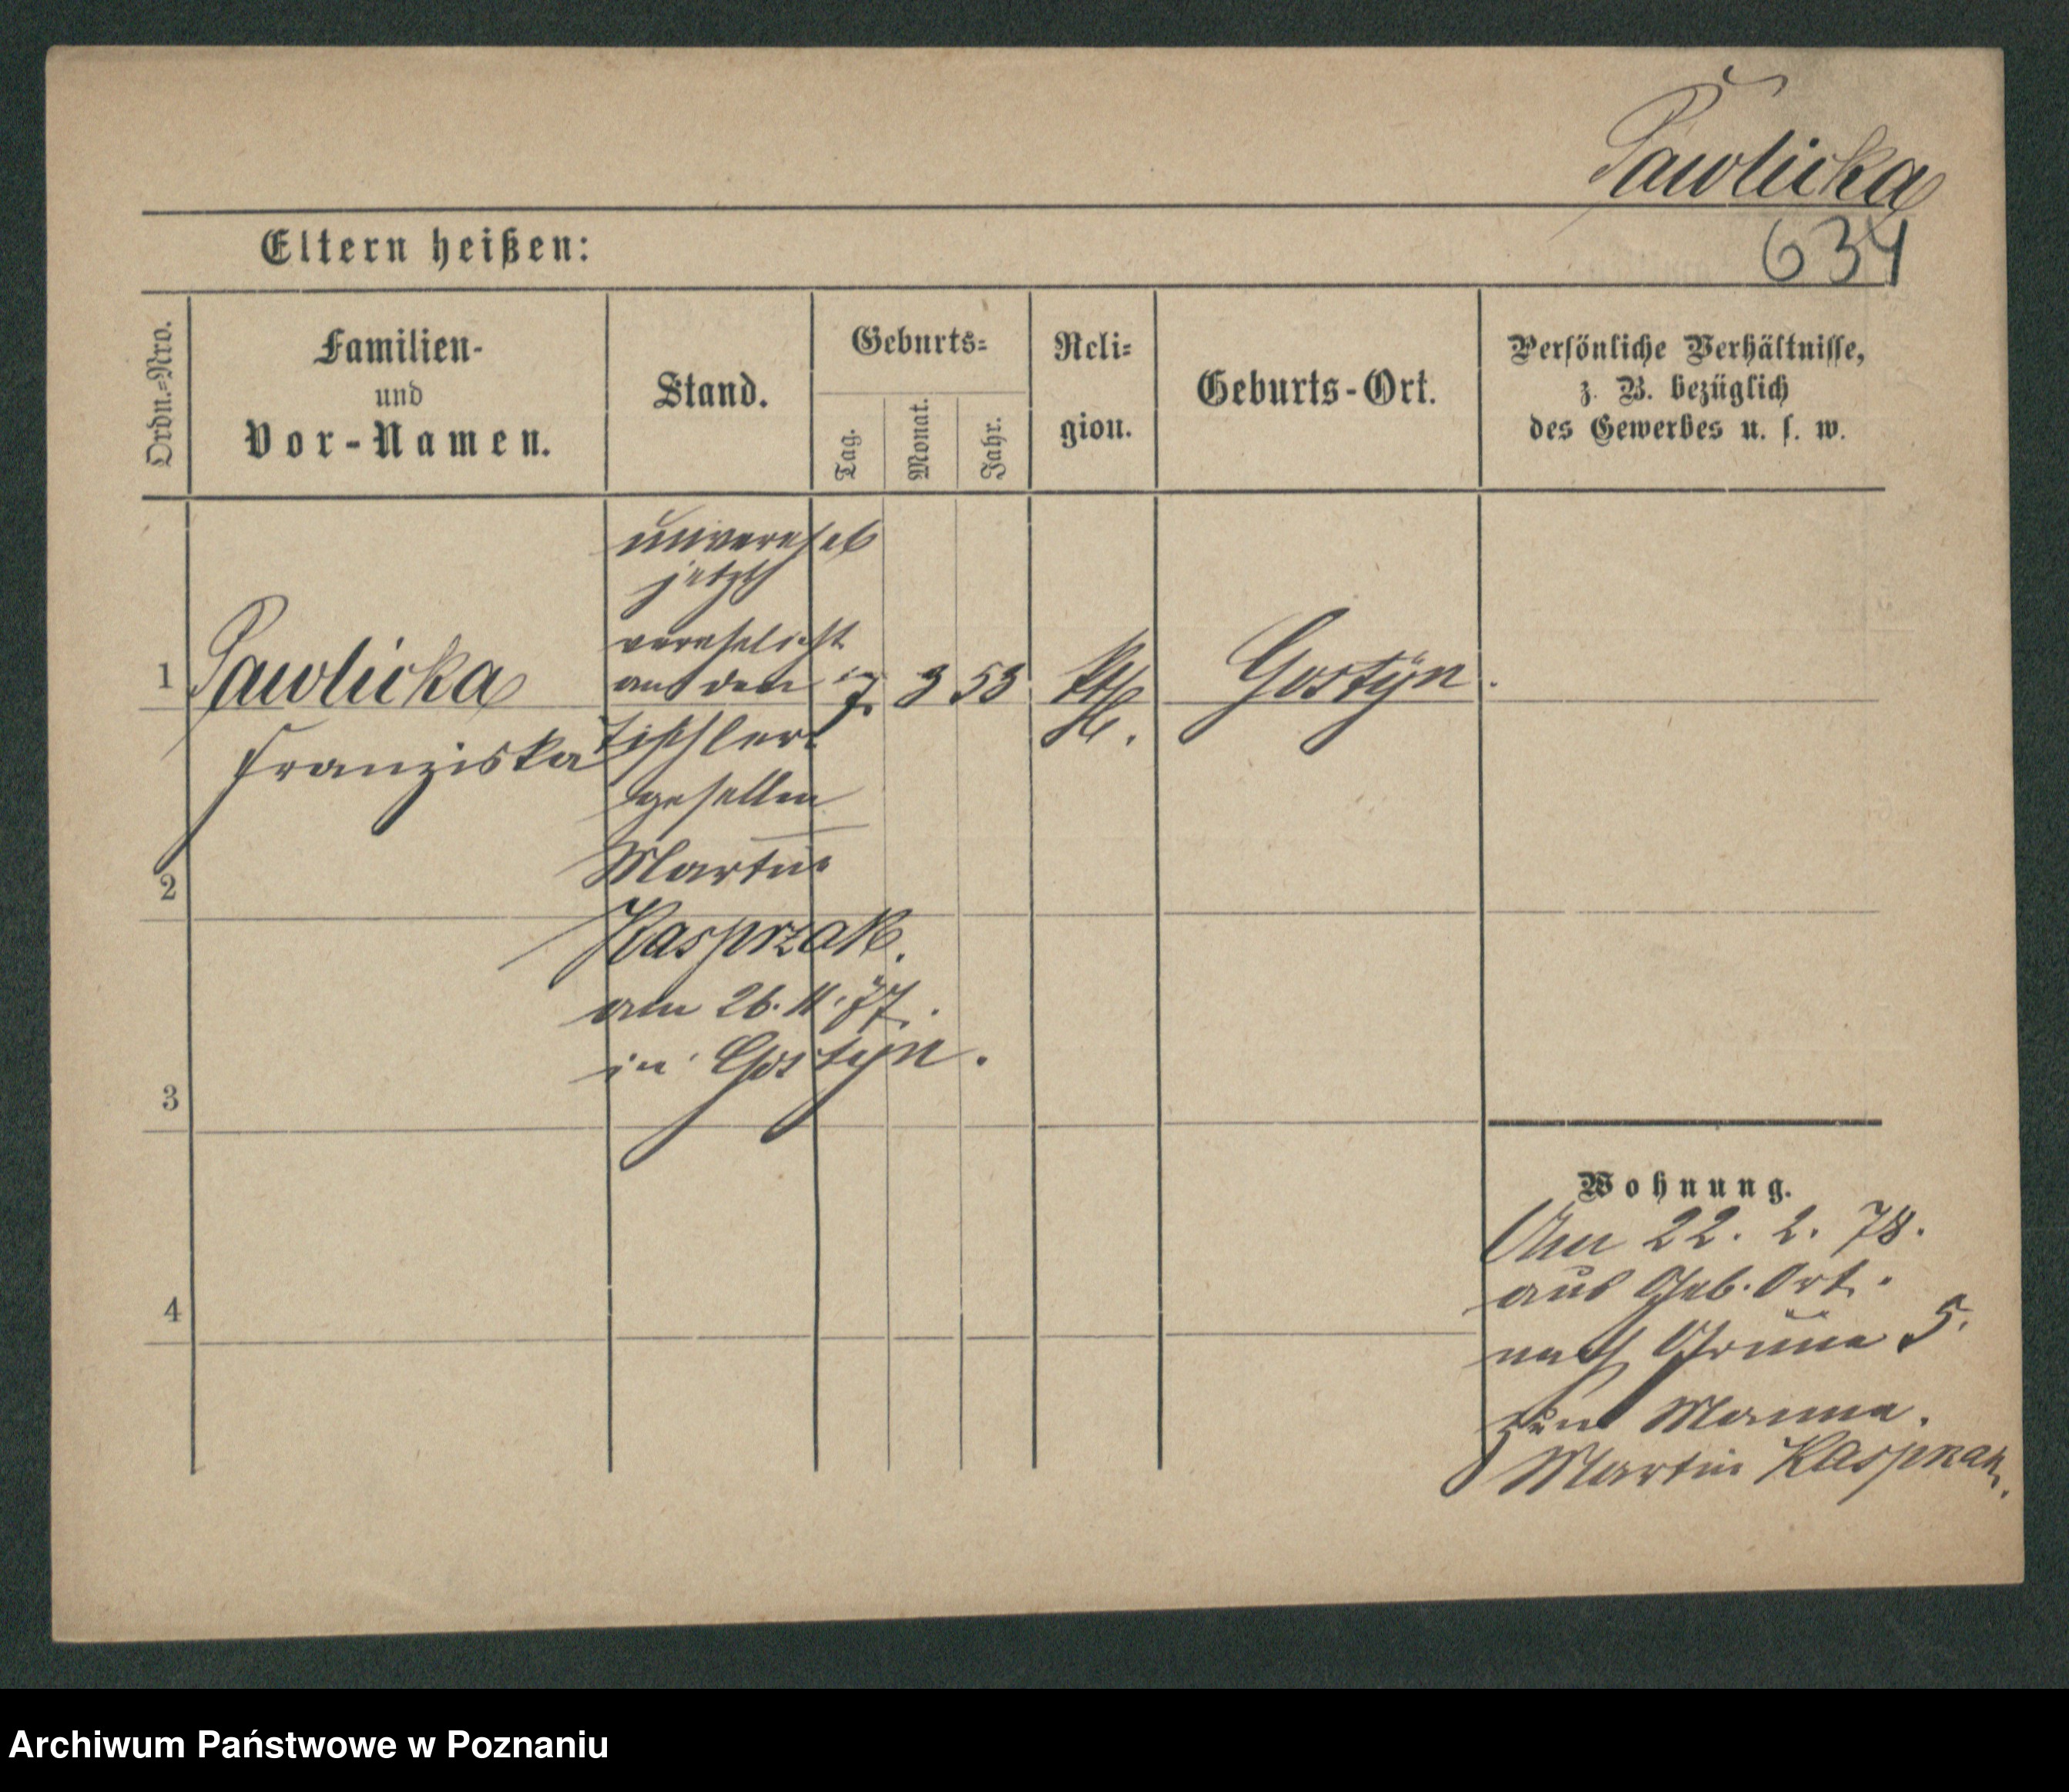 Pawlicka
634
Eltern heißen:
Ordn.=Nro.
Familien-
und
Vor-Namen.
Stand.
Geburts=
Tag.
Monat.
Jahr.
Reli=
gion.
Geburts-Ort.
Persönliche Verhältnisse,
z. B. bezüglich
des Gewerbes u. s. w.
unverehel
jetzt
verehelicht
an den
Tischler
gesellen
Martin
Kasprzak.
am 26. 11. 77.
in Gostyn.
1
Pawlicka
Franziska
7. 3 53
Kth.
Gostyn.
2
3
4
Wohnung.
Am 22. 2. 78.
aus Geb. Ort.
nach Grüne 5.
zum Manne.
Martin Kasprzak.
Archiwum Państwowe w Poznaniu